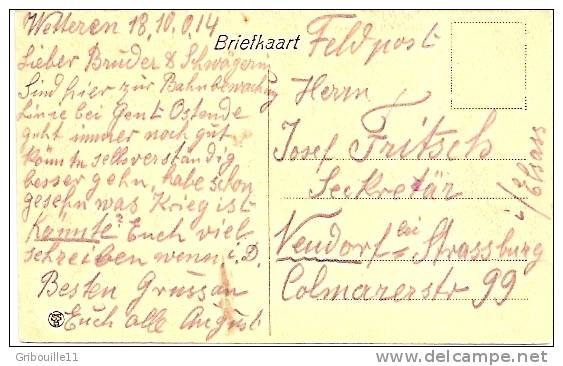 Wetteren 18.10.14
Lieber Bruder & Schwägerin
Sind hier zur Bahnbewachung
Linie bei Gent Ostende
geht immer noch gut
könnte selbsverständig
besser gehn, habe schon
gesehn was Krieg ist
Könnte? Euch viel
schreiben wenn i. D.
Besten Grussan
Euch alle August
Briefkaart
Feldpost
Herrn
Josef Fritsch
Seckretär
i/Elsass
Neudorf bei Strassburg
Colmarerstr 99
Gribouille11
delcampe.net